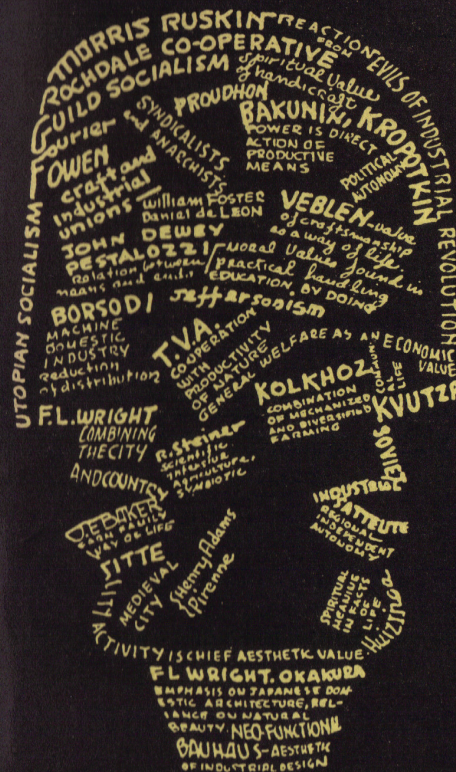 MORRIS RUSKIN
REACTION FROM EVILS OF INDUSTRIAL REVOLUTION
ROCHDALE CO-OPERATIVE
GUILD SOCIALISM
Spiritual Value of handicraft
Fourier
PROUDHON
SYNDICALISTS
and ANARCHISTS
BAKUNIN, KROPOTKIN
POWER IS DIRECT
ACTION OF
PRODUCTIVE
MEANS
POLITICAL
AUTONOMY
UTOPIAN SOCIALISM
OWEN
craft and
industrial
unions
William FOSTER
Daniel de LEON
VEBLEN-value
of craftsmanship
as a way of life.
JOHN DEWEY
PESTALOZZI
Relation between
means and ends.
Moral Values found in
practical handling
EDUCATION, BY DOING
BORSODI
Jeffersonism
MACHINE
DOMESTIC
INDUSTRY
Reduction
of distribution
T.V.A.
COOPERATION
WITH
PRODUCTIVITY
OF NATURE
GENERAL WELFARE AS AN ECONOMIC
VALUE
KOLKHOZ
COMBINATION
OF MECHANIZED
AND DIVERSIFIED
FARMING
LIFE
KVUTZA
SOVIET
F.L.WRIGHT
COMBINING
THE CITY
AND COUNTRY
R.Steiner
Scientific
Intensive
Agriculture,
SYMBIOTIC
INDUSTRIAL
SATTELITE
REGIONAL
INDEPENDENT
AUTONOMY
FAMILY
WAY OF LIFE
SITTE
MEDIEVAL
CITY
Henry Adams
Pirenne
SPIRITUAL
MEANING
IN FACTS
OF
LIFE
Huizinga
ACTIVITY IS CHIEF AESTHETIC VALUE
F L WRIGHT. OKAKURA
EMPHASIS ON JAPANESE DOM-
ESTIC ARCHITECTURE, REL-
IANCE ON NATURAL
BEAUTY. NEO-FUNCTIONAL
BAUHAUS-AESTHETIK
OF INDUSTRIAL DESIGN